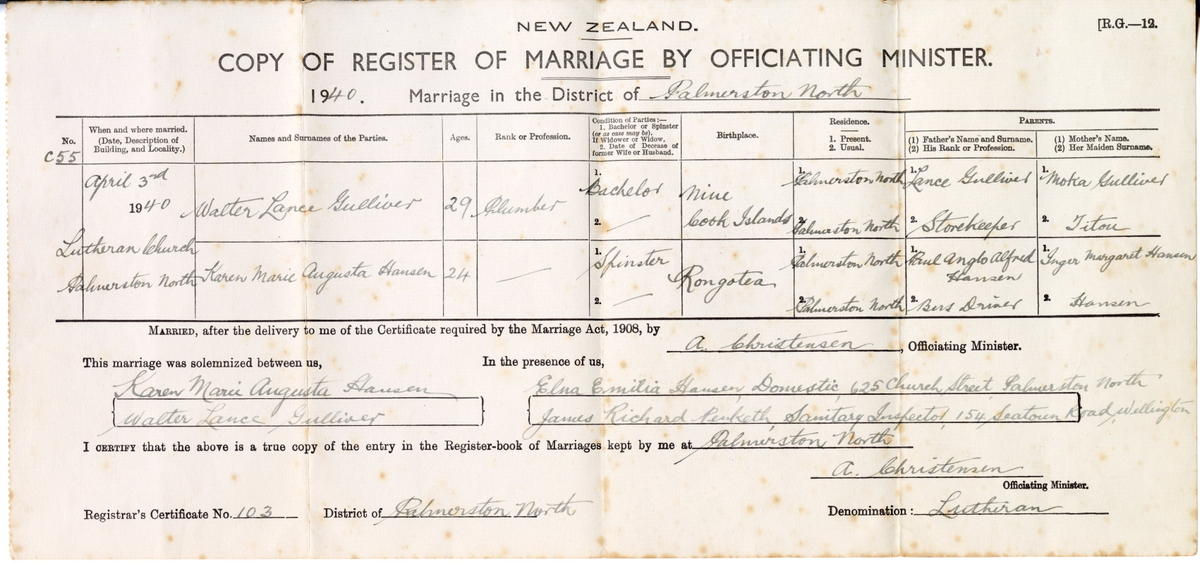 NEW ZEALAND.
[R.G.—12.
COPY OF REGISTER OF MARRIAGE BY OFFICIATING MINISTER.
1940. Marriage in the District of Palmerston North
No.
C55
When and where married.
(Date, Description of
Building, and Locality.)
Names and Surnames of the Parties.
Ages.
Rank or Profession.
Condition of Parties:—
1. Bachelor or Spinster
(or as case may be).
If Widower or Widow,
2. Date of Decease of
former Wife or Husband.
Birthplace.
Residence.
1. Present.
2. Usual.
PARENTS.
(1) Father's Name and Surname.
(2) His Rank or Profession.
(1) Mother's Name.
(2) Her Maiden Surname.
April 3rd
1940
Lutheran Church
Palmerston North
Walter Lance Gulliver
29
Plumber
1. Bachelor
2. —
Niue
Cook Islands
1. Palmerston North
2. Palmerston North
1. Lance Gulliver
2. Storekeeper
1. Moka Gulliver
2. Titou
Karen Marie Augusta Hansen
24
—
1. Spinster
2. —
Rongotea
1. Palmerston North
2. Palmerston North
1. Poul Anglo Alfred
Hansen
2. Driver
1. Inger Margaret Hansen
2. Hansen
MARRIED, after the delivery to me of the Certificate required by the Marriage Act, 1908, by
A. Christensen, Officiating Minister.
This marriage was solemnized between us,
In the presence of us,
Karen Marie Augusta Hansen
Walter Lance Gulliver
Elna Emilia Hansen, Domestic, 625 Church Street, Palmerston North
James Richard Penketh Sanitary Inspector, 154, Seatoun Road, Wellington
I CERTIFY that the above is a true copy of the entry in the Register-book of Marriages kept by me at Palmerston North
A. Christensen
Officiating Minister.
Registrar's Certificate No. 103 District of Palmerston North
Denomination: Lutheran